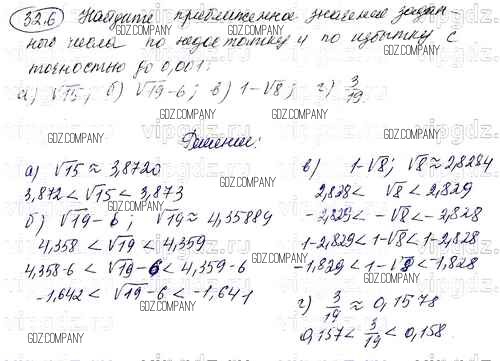 32.6 Найдите приближенное значение задан-
ного числа по недостатку и по избытку с
точностью до 0,001:
а) √15; б) √19-6; в) 1-√8; г) 3/19.
Решение:
а) √15 ≈ 3,8720
3,872 < √15 < 3,873
б) √19-6; √19 ≈ 4,35889
4,358 < √19 < 4,359
4,358-6 < √19-6 < 4,359-6
-1,642 < √19-6 < -1,641
в) 1-√8; √8 ≈ 2,8284
2,828 < √8 < 2,829
-2,829 < -√8 < -2,828
1-2,829 < 1-√8 < 1-2,828
-1,829 < 1-√8 < -1,828
г) 3/19 ≈ 0,1578
0,157 < 3/19 < 0,158.
GDZ.COMPANY
vipgdz.com